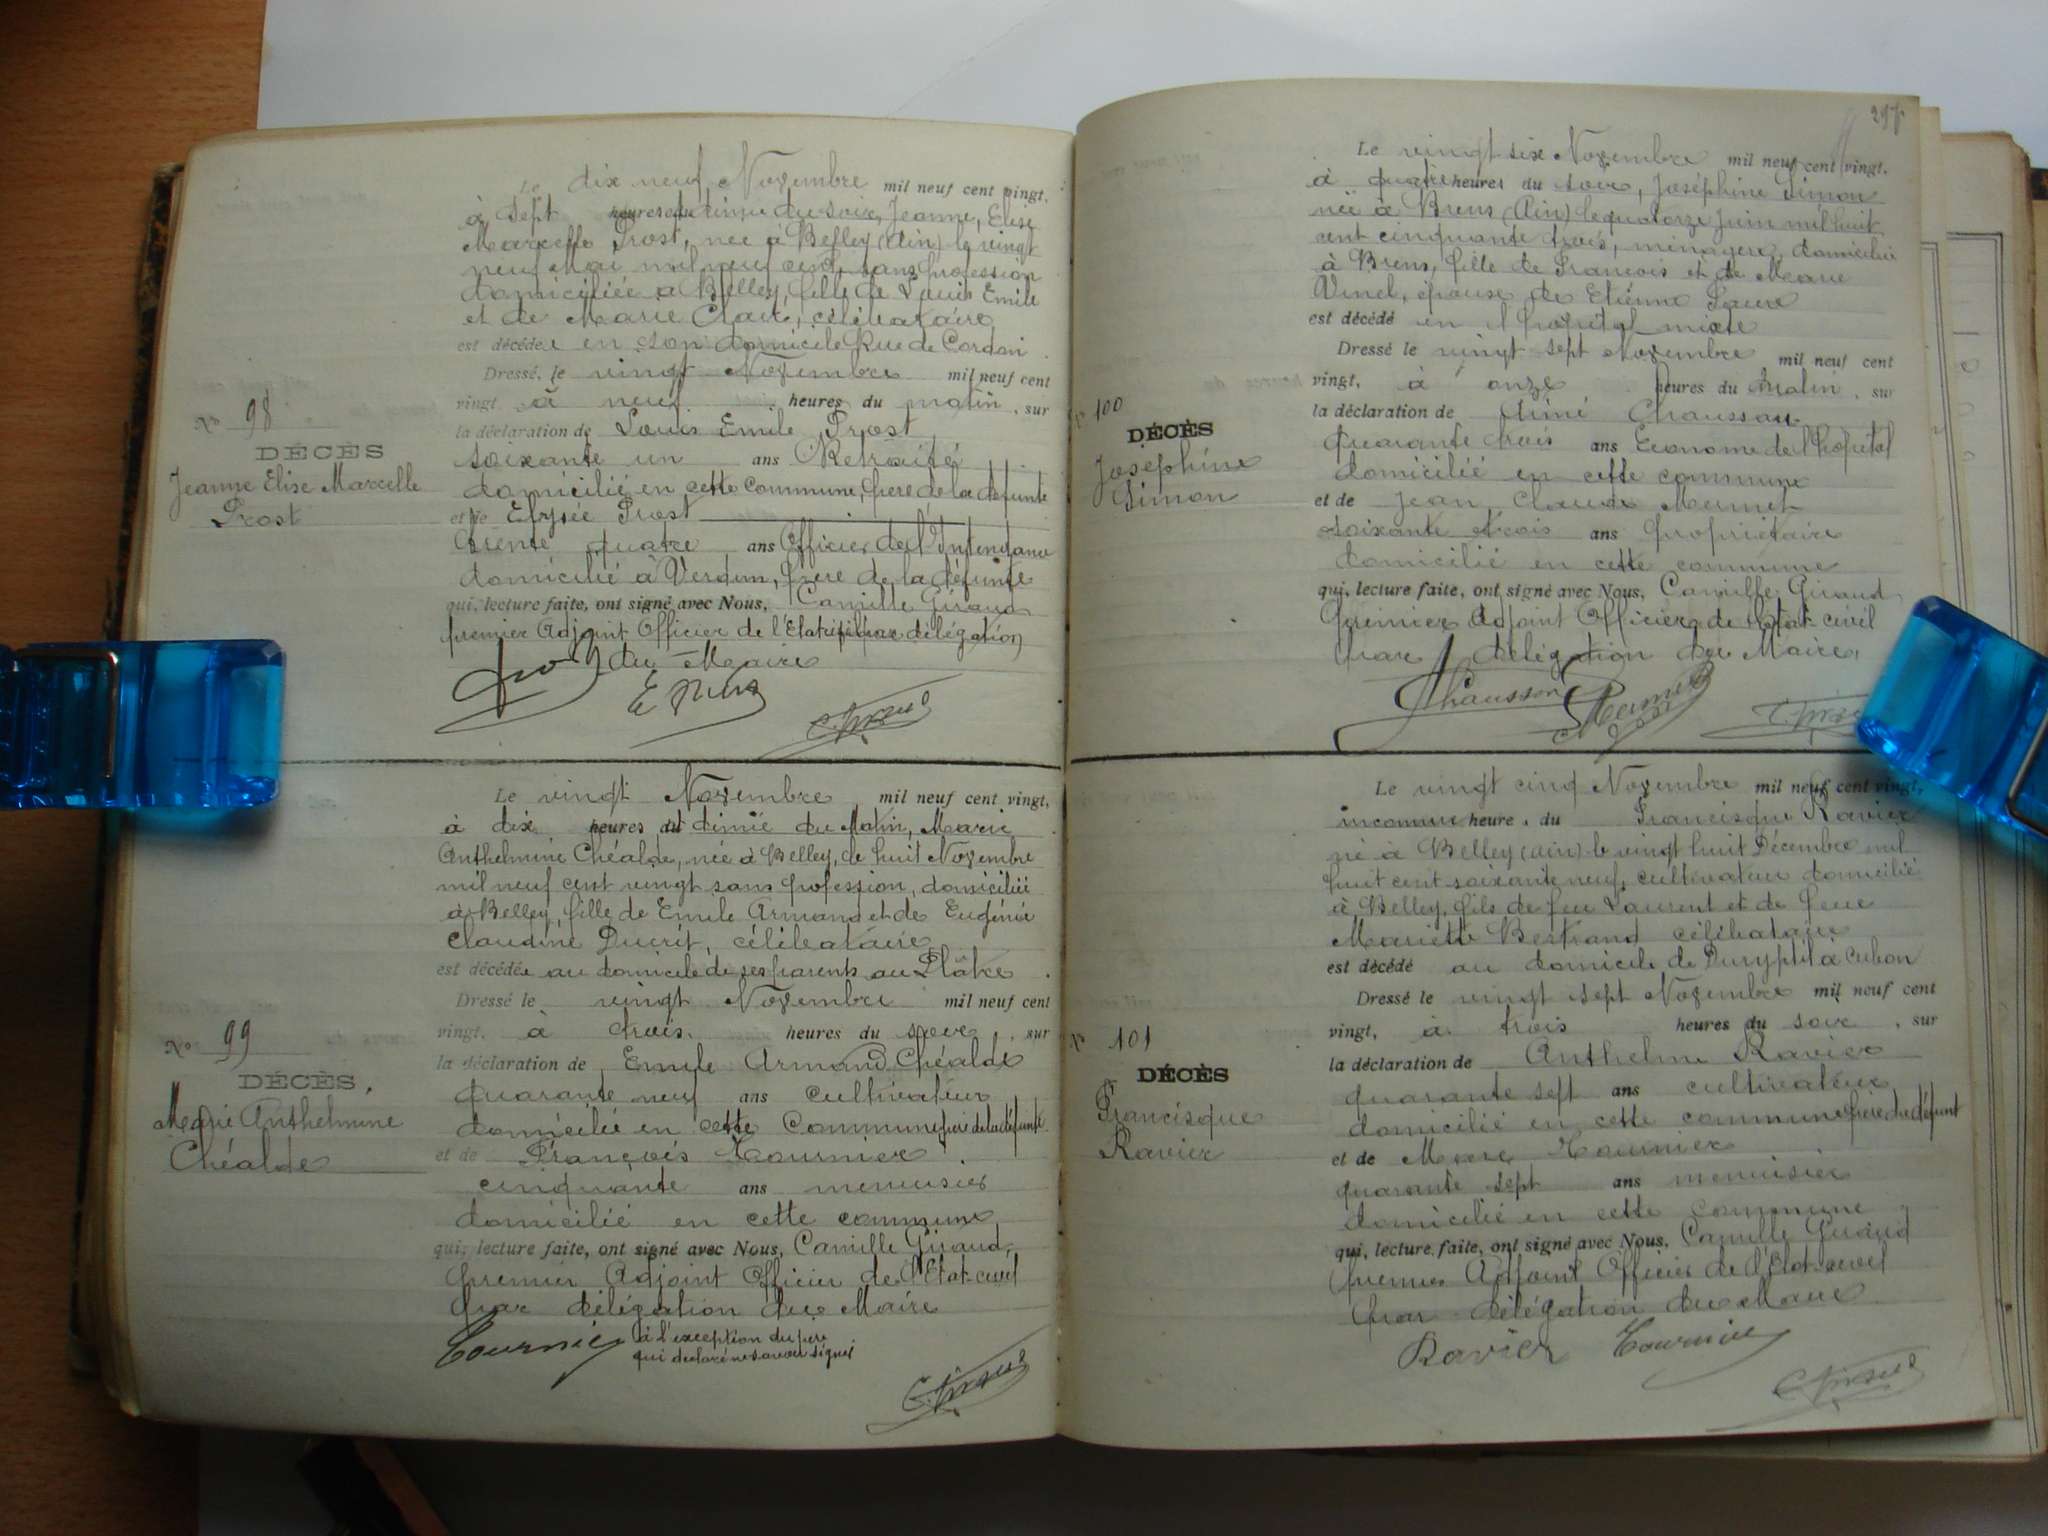 Le dix neuf Novembre mil neuf cent vingt,
à sept heures et demie du soir, Jeanne, Elise
Marcelle Prost, née à Belley (Ain) le vingt
neuf Mai mil neuf cent, sans profession
domiciliée à Belley, fille de Louis Emile
et de Marie Claire, célibataire
est décédée en son domicile Rue de Cordon
Dressé, le vingt Novembre mil neuf cent
vingt à neuf heures du matin, sur
la déclaration de Louis Emile Prost
soixante un ans Retraité
domicilié en cette commune, père de la défunte
et de Elysée Prost
trente quatre ans Officier de l'Intendance
domicilié à Verdun, frère de la défunte
qui, lecture faite, ont signé avec Nous, Camille Giraud
premier Adjoint Officier de l'Etat civil par délégation
du Maire
E Prost
C. Giraud
N° 98
DÉCÈS
Jeanne Elise Marcelle
Prost
Le vingt Novembre mil neuf cent vingt,
à dix heures et dimie du Matin, Marie
Anthelmine Chéalde, née à Belley, le huit Novembre
mil neuf cent vingt sans profession, domiciliée
à Belley, fille de Emile Armand et de Eugénie
Claudine Ducrit, célibataire
est décédée au domicile de ses parents au Plâtre
Dressé le vingt Novembre mil neuf cent
vingt, à trois heures du soir, sur
la déclaration de Emile Armand Chéalde
quarante neuf ans cultivateur
domicilié en cette Commune père de la défunte
et de François Tournier
cinquante ans menuisier
domicilié en cette commune
qui, lecture faite, ont signé avec Nous, Camille Giraud,
premier Adjoint Officier de l'Etat-civil
par délégation du Maire
Tournier à l'exception du père
qui declaré ne savoir signer
C. Giraud
N° 99
DÉCÈS.
Marie Anthelmine
Chéalde
297
Le vingt six Novembre mil neuf cent vingt,
à quatre heures du soir, Joséphine Simon
née à Brens (Ain) le quatorze Juin mil huit
cent cinquante trois, ménagère, domiciliée
à Brens, fille de François et de Marie
Vinel, épouse de Etienne
est décédé en l'hopital mixte
Dressé le vingt sept Novembre mil neuf cent
vingt, à onze heures du Matin, sur
la déclaration de Aimé Chausson
Quarante trois ans Econome de l'hopital
domicilié en cette commune
et de Jean Claude Mermet
soixante trois ans propriétaire
domicilié en cette commune
qui, lecture faite, ont signé avec Nous, Camille Giraud
premier Adjoint Officier de l'Etat civil
par délégation du Maire,
Chausson Mermet C. Giraud
N° 100
DÉCÈS
Joséphine
Simon
Le vingt cinq Novembre mil neuf cent vingt,
inconnue heure, du Francisque Ravier
né à Belley (ain) le vingt huit Décembre mil
huit cent soixante neuf, cultivateur domicilié
à Belley, fils de feu Laurent et de feue
Mariette Bertrand célibataire
est décédé au domicile de à Cubon
Dressé le vingt sept Novembre mil neuf cent
vingt, à trois heures du soir, sur
la déclaration de Anthelme Ravier
quarante sept ans cultivateur
domicilié en cette commune frère du défunt
et de Marc Tournier
quarante sept ans menuisier
domicilié en cette commune
qui, lecture faite, ont signé avec Nous, Camille Giraud
premier Adjoint Officier de l'Etat-civil
par délégation du Maire
Ravier Tournier
C. Giraud
N° 101
DÉCÈS
Francisque
Ravier